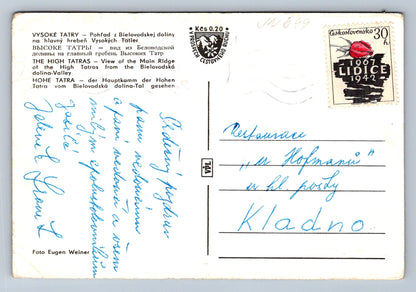 VYSOKÉ TATRY — Pohľad z Bielovodskej doliny
na hlavný hrebeň Vysokých Tatier
ВЫСОКИЕ ТАТРЫ — вид из Беловодской
долины на главный гребень Высоких Татр
THE HIGH TATRAS — View of the Main Ridge
of the High Tatras from the Bielovodská
dolina-Valley
HOHE TATRA — der Hauptkamm der Hohen
Tatra vom Bielovodská dolina-Tal gesehen
Kčs 0.20
Československo
30 h
1967
LIDICE
1942
Srdečný pozdrav
panu vedoucímu
a paní vedoucí a všem
milým spolupracovníkům
Restaurace
„u Hofmanů"
u hl. pošty
Kladno.
Foto Eugen Weiner